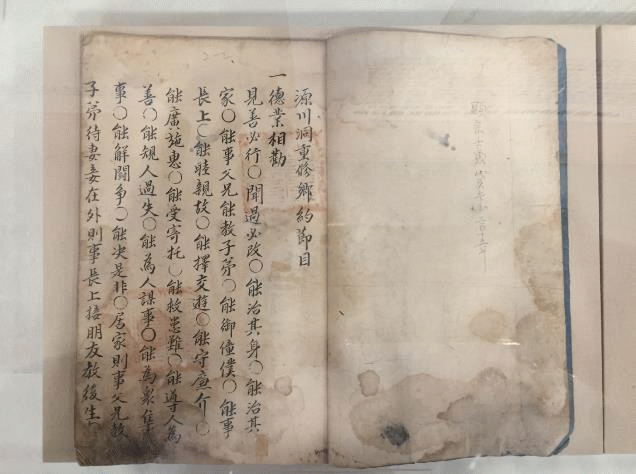 源川洞重修鄕約節目
一德業相勸
見善必行○聞過必改○能治其身○能治其
家○能事父兄能教子弟○能御僮僕○能事
長上○能睦親故○能擇交遊○能守廉介○
能廣施惠○能受寄托○能救患難○能導人為
善○能規人過失○能為人謀事○能為衆集
事○能解鬪爭○能决是非○居家則事父兄教
子弟待妻妾在外則事長上接朋友教後生